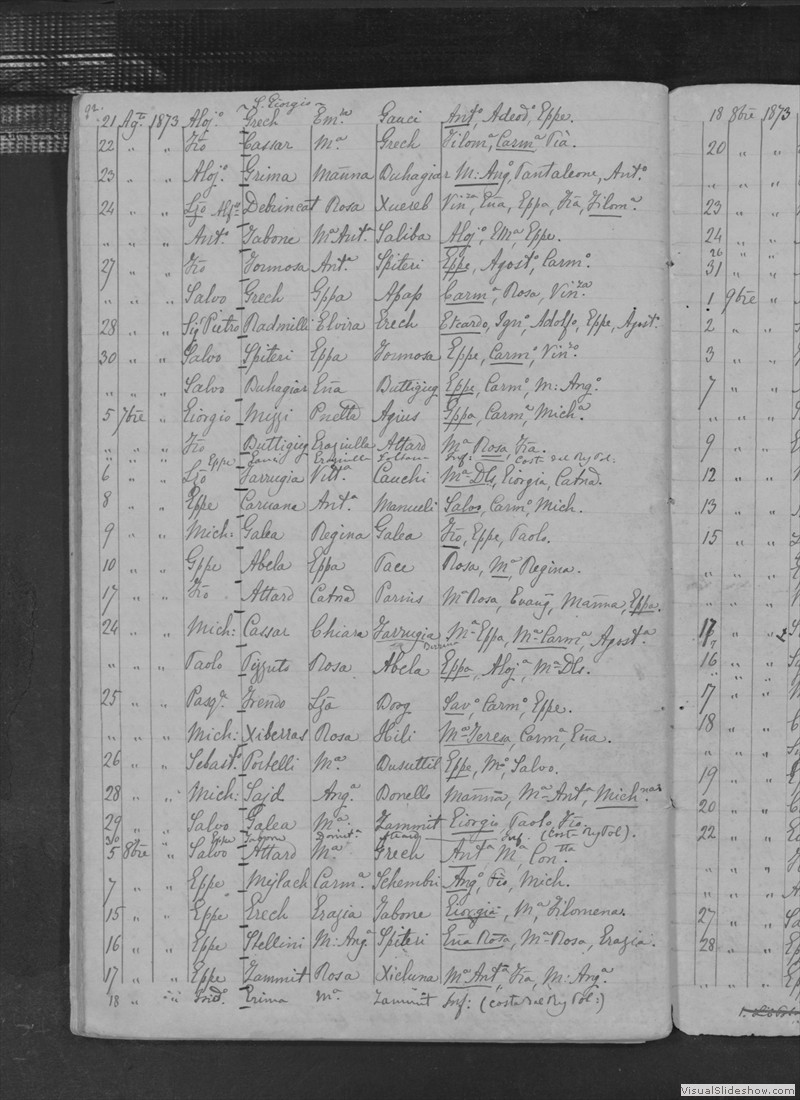 ~ S. Giorgio ~
21 Ag.to 1873 Aloj.o Grech Em.la Gauci Ant.o Adeod.o, Eppe.
22 " " Fro Cassar M.a Grech Filom.a, Carm.a Pià
23 " " Aloj.o Grima Mañna Buhagiar M: Ang.o, Pantaleone, Ant.o
24 " " Ljo Alf.o Debrincat Rosa Xuereb Vin.za, Eña, Eppa, Fra, Filom.a
" " " Ant.o Tabone M.a Ant.a Saliba Aloj.o, Em.a, Eppe.
27 " " Fro Formosa Ant.a Spiteri Eppe, Agost.o, Carm.o
" " " Salvo Grech Gppa Apap Carm.a, Rosa, Vin.za
28 " " Sig Pietro Radmilli Elvira Grech Ign.o, Adolfo, Eppe, Agost.o
30 " " Salvo Spiteri Eppa Formosa Eppe, Carm.o, Vin.zo
" " " Salvo Buhagiar Eña Buttigieg Eppe, Carm.o, M: Ang.o
5 7bre " Giorgio Mizzi Pnetta Agius Gppa, Carm.a, Mich.a
" " " Fro Buttigieg Graziella Attard M.a Rosa, Fra.
6 " " Ljo Farrugia Vitt.a Cauchi M.a Dls, Giorgia, Catnã.
8 " " Eppe Caruana Ant.a Manueli Salvo, Carm.o, Mich.
9 " " Mich: Galea Regina Galea Fro, Eppe, Paolo.
10 " " Gppe Abela Eppa Pace Rosa, M.a, Regina.
17 " " Fro Attard Catnã Parnis M.a Rosa, Evang, Mañna, Eppa.
24 " " Mich: Cassar Chiara Farrugia M.a Eppa, M.a Carm.a, Agost.a
" " " Paolo Pizzuto Rosa Abela Eppa, Aloj.a, M.a Dls.
25 " " Pasq.e Grendo Lja Borg Sav.o, Carm.o, Eppe.
" " " Mich: Xiberras Rosa Hili M.a Teresa, Carm.a, Eña.
26 " " Sebast.o Portelli M.a Busuttil Eppe, M.o, Salvo.
28 " " Mich: Sajd Ang.a Bonello Mañña, M.a Ant.a, Mich.na
29 " " Salvo Galea M.a Zammit Giorgio Paolo, Fro.
30 Eppe Tabone Attard Inf. (Cost. Reg Pol).
5 8bre " Salvo Attard M.a Grech Ant.a M.a, Con.tta
7 " " Eppe Mejlach Carm.a Schembri Ang.o, Fro, Mich.
15 " " Eppe Grech Grazia Tabone Giorgia, M.a, Filomena.
16 " " Eppe Stellini M: Ang.a Spiteri Eña Rosa, M.a Rosa, Grazia.
17 " " Eppe Zammit Rosa Xicluna M.a Ant.a, Fra, M: Ang.a
18 " " Frid.o Grima M.a Zammit Inf: (Cost. del Reg Pol:)
18 8bre 1873
20 " "
" " "
23 " "
24 " "
26
31 " "
1 9bre "
2 " "
3 " "
7 " "
" " "
9 " "
12 " "
13 " "
15 " "
" " "
" " "
17 "
16 " "
17 " "
18 " "
" " "
19 " "
20 " "
22 " "
" " "
" " "
27 " "
28 " "
" " "
VisualSlideshow.com